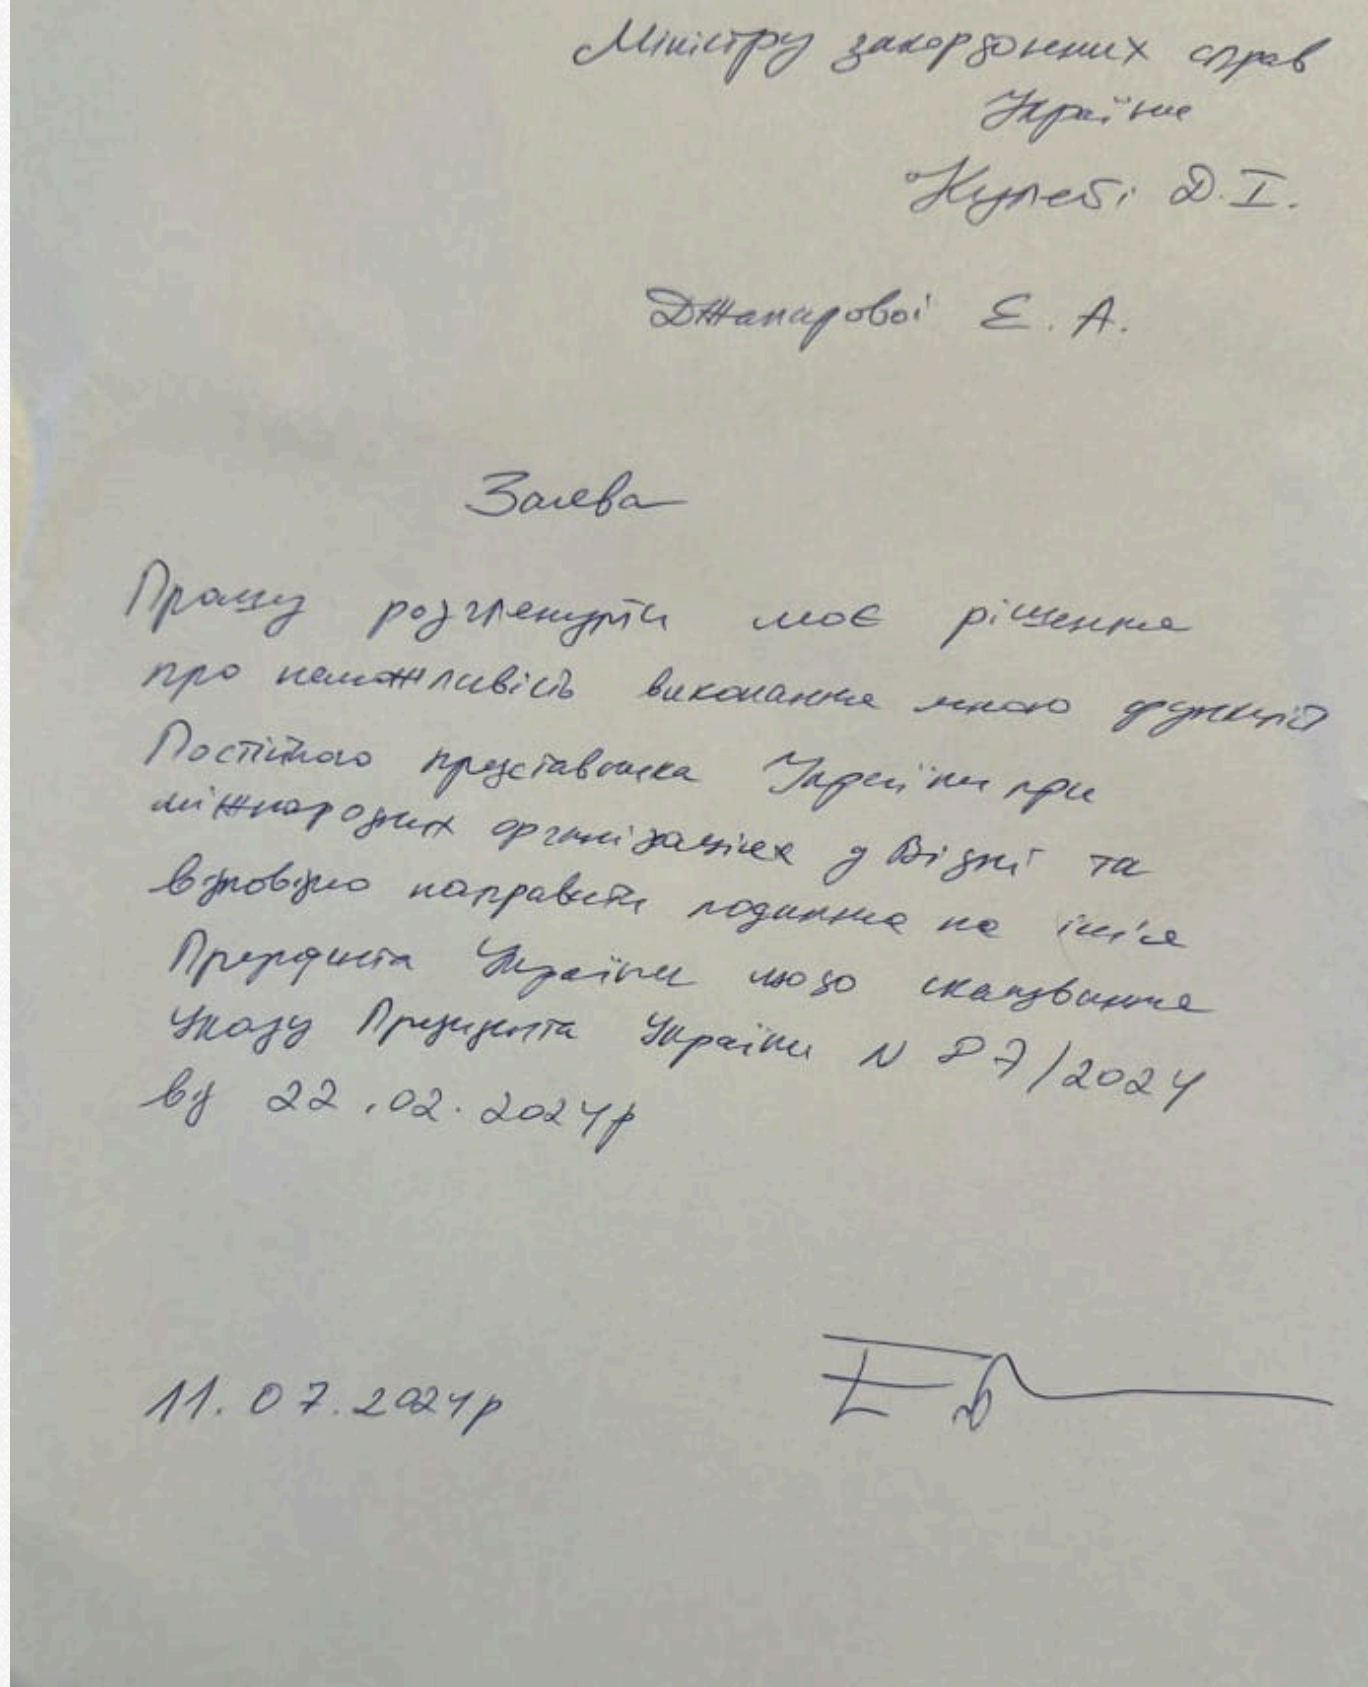 Міністру закордонних справ
України
Кулебі Д.І.
Джапарової Е. А.
Заява
Прошу розглянути моє рішення
про неможливість виконання мною функцій
Постійного представника України при
міжнародних організаціях у Відні та
відповідно направити подання на ім'я
Президента України щодо скасування
Указу Президента України N 87/2024
від 22.02.2024р
11.07.2024р